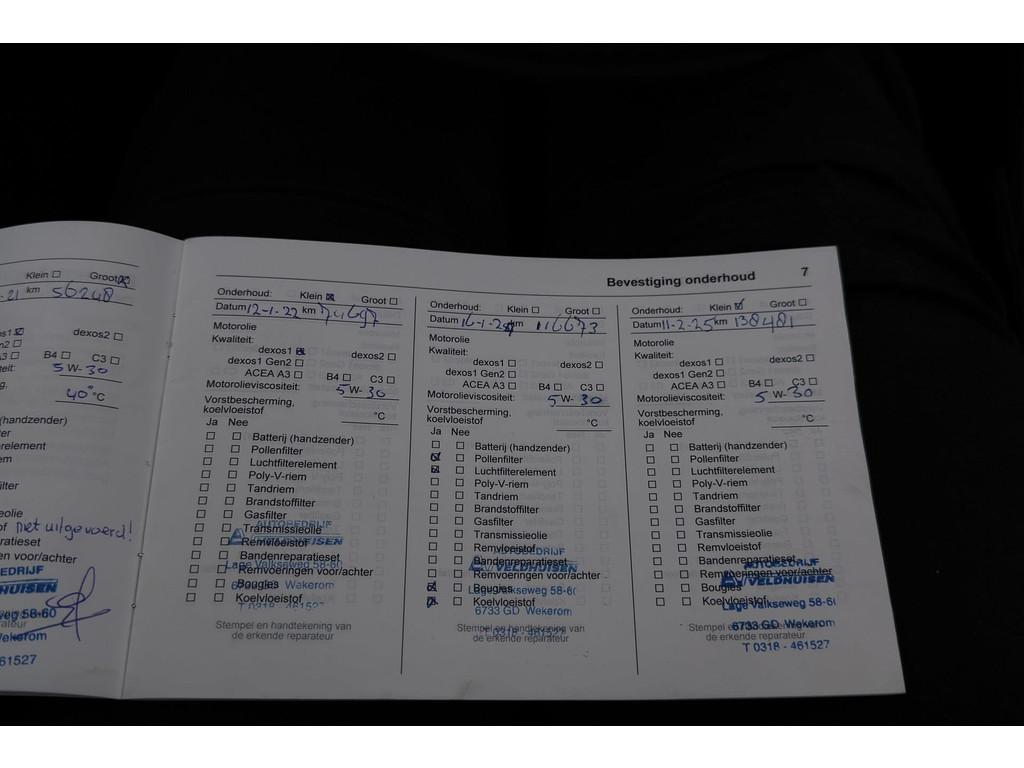 Klein ☐ Groot ☒
-21 km 56248
s1 ☒ dexos2 ☐
n2 ☐
A3 ☐ B4 ☐ C3 ☐
teit: 5 W- 30
g,
40°C
(handzender)
er
relement
m
ilter
eolie
of niet uitgevoerd!
ratieset
en voor/achter
EDRIJF
HUISEN
eg 58-60
rateur
Wekerom
61527
Bevestiging onderhoud 7
Onderhoud: Klein ☒ Groot ☐
Datum 12-1-22 km 74697
Motorolie
Kwaliteit:
dexos1 ☒ dexos2 ☐
dexos1 Gen2 ☐
ACEA A3 ☐ B4 ☐ C3 ☐
Motorolieviscositeit: 5 W- 30
Vorstbescherming,
koelvloeistof °C
Ja Nee
☐ ☐ Batterij (handzender)
☐ ☐ Pollenfilter
☐ ☐ Luchtfilterelement
☐ ☐ Poly-V-riem
☐ ☐ Tandriem
☐ ☐ Brandstoffilter
☐ ☐ Gasfilter
☐ ☐ Transmissieolie
☐ ☐ Remvloeistof
☐ ☐ Bandenreparatieset
☐ ☐ Remvoeringen voor/achter
☐ ☐ Bougies
☐ ☐ Koelvloeistof
AUTOBEDRIJF
VELDHUISEN
Lage Valkseweg 58-60
6733 GD Wekerom
T 0318 - 461527
Stempel en handtekening van
de erkende reparateur
Onderhoud: Klein ☐ Groot ☐
Datum 16-1-24 km 116673
Motorolie
Kwaliteit:
dexos1 ☐ dexos2 ☐
dexos1 Gen2 ☐
ACEA A3 ☐ B4 ☐ C3 ☐
Motorolieviscositeit: 5 W- 30
Vorstbescherming,
koelvloeistof °C
Ja Nee
☐ ☐ Batterij (handzender)
☒ ☐ Pollenfilter
☒ ☐ Luchtfilterelement
☐ ☐ Poly-V-riem
☐ ☐ Tandriem
☐ ☐ Brandstoffilter
☐ ☐ Gasfilter
☐ ☐ Transmissieolie
☐ ☐ Remvloeistof
☐ ☐ Bandenreparatieset
☐ ☐ Remvoeringen voor/achter
☒ ☐ Bougies
☒ ☐ Koelvloeistof
AUTOBEDRIJF
VELDHUISEN
Lage Valkseweg 58-60
6733 GD Wekerom
T 0318 - 461527
Stempel en handtekening van
de erkende reparateur
Onderhoud: Klein ☑ Groot ☐
Datum 11-2-25 km 138481
Motorolie
Kwaliteit:
dexos1 ☐ dexos2 ☐
dexos1 Gen2 ☐
ACEA A3 ☐ B4 ☐ C3 ☐
Motorolieviscositeit: 5 W-30
Vorstbescherming,
koelvloeistof °C
Ja Nee
☐ ☐ Batterij (handzender)
☐ ☐ Pollenfilter
☐ ☐ Luchtfilterelement
☐ ☐ Poly-V-riem
☐ ☐ Tandriem
☐ ☐ Brandstoffilter
☐ ☐ Gasfilter
☐ ☐ Transmissieolie
☐ ☐ Remvloeistof
☐ ☐ Bandenreparatieset
☐ ☐ Remvoeringen voor/achter
☐ ☐ Bougies
☐ ☐ Koelvloeistof
AUTOBEDRIJF
VELDHUISEN
Lage Valkseweg 58-60
6733 GD Wekerom
T 0318 - 461527
Stempel en handtekening van
de erkende reparateur